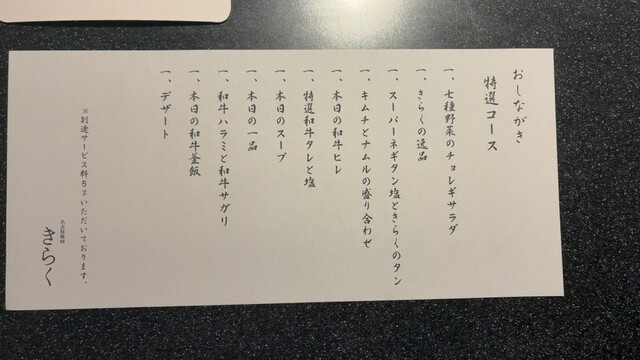 おしながき
特選コース
一、七種野菜のチョレギサラダ
一、きらくの逸品
一、スーパーネギタン塩ときらくのタン
一、キムチとナムルの盛り合わせ
一、本日の和牛ヒレ
一、特選和牛タレと塩
一、本日のスープ
一、本日の一品
一、和牛ハラミと和牛サガリ
一、本日の和牛釜飯
一、デザート
※別途サービス料5%いただいております。
きらく